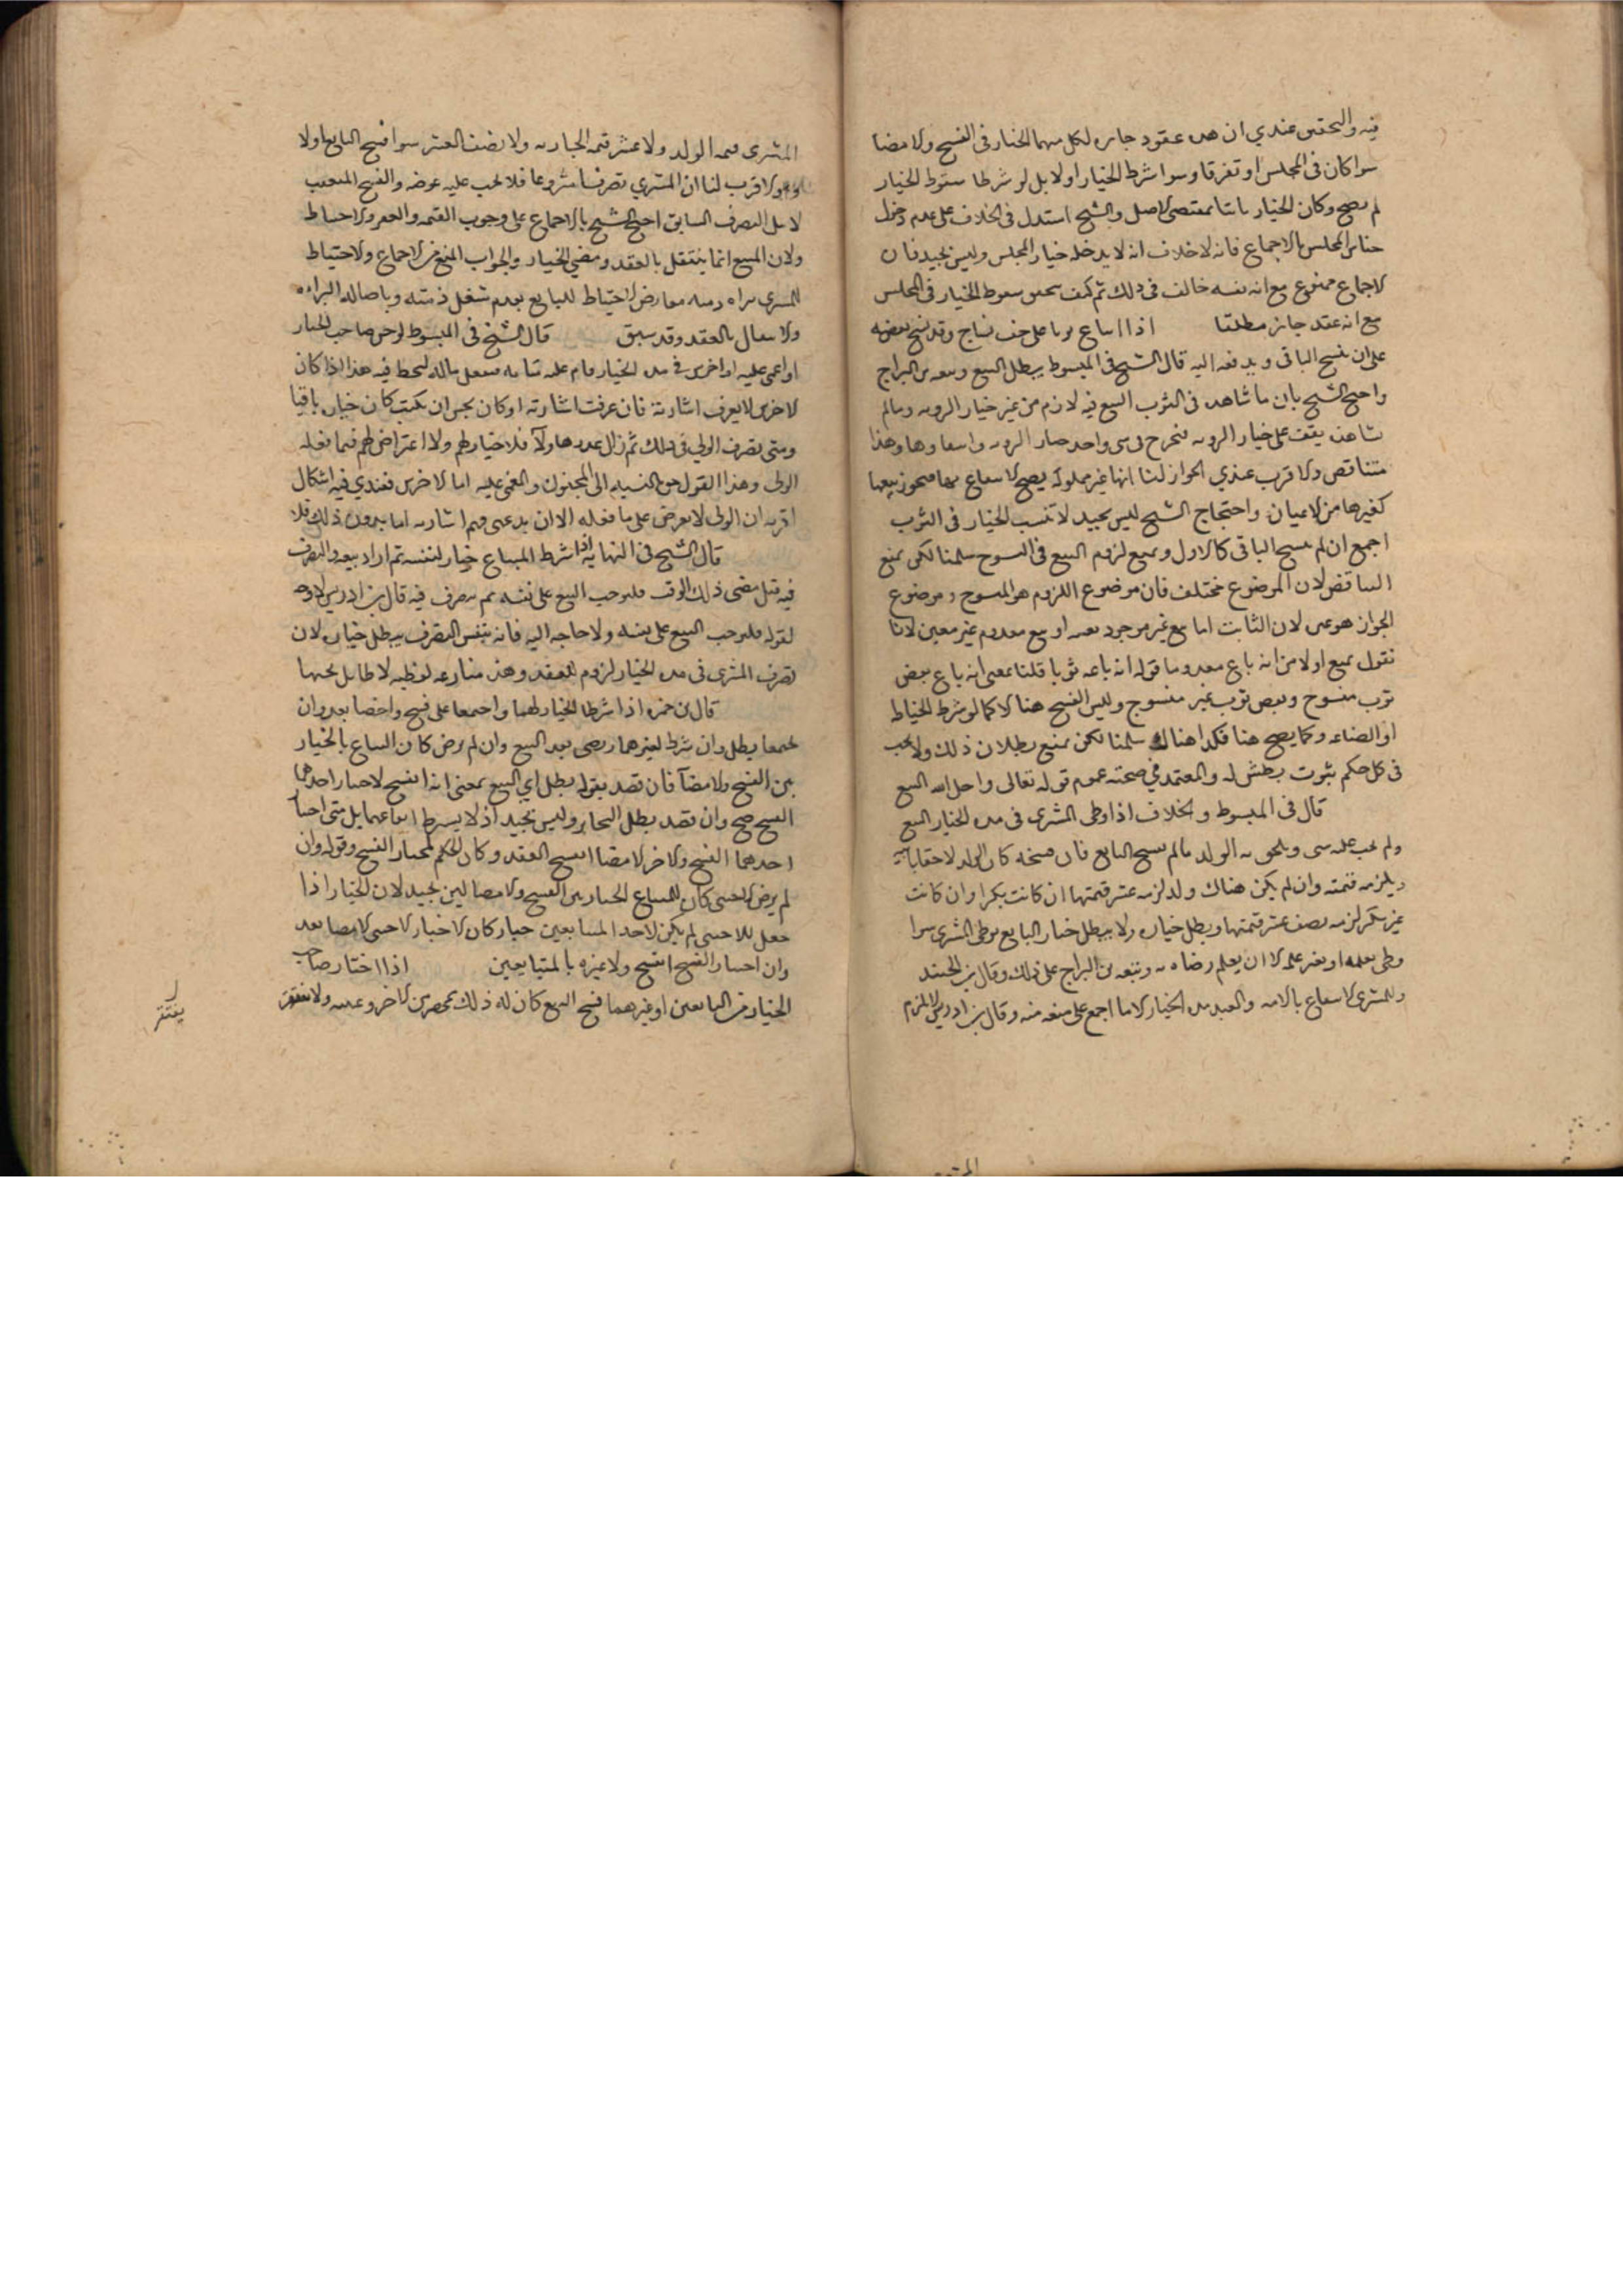 فيه والتحقيق عندي ان هذه عقود جايزه لكل منهما الخيار في الفسخ والامضا
سوا كان في المجلس او تفرقا وسوا شرط الخيار او لا بل لو شرطا سقوط الخيار
لم يصح وكان الخيار ثابتا بمقتضى الاصل والشيخ استدل في الخلاف على عدم دخول
خيار المجلس بالاجماع فانه لا خلاف انه لا يدخله خيار المجلس وليس بجيد فان
الاجماع ممنوع مع انه نفسه خالف في ذلك ثم كيف يتحقق سقوط الخيار في المجلس
مع انه عقد جايز مطلقا اذا ابتاع ثوبا على خف نساج وقد نسج بعضه
على ان ينسج الباقي ويدفعه اليه قال الشيخ في المبسوط يبطل البيع وتبعه بن البراج
واحتج الشيخ بان ما شاهده في الثوب البيع فيه لازم من غير خيار الرويه وما لم
يشاهده يقف على خيار الرويه فيخرج في شي واحد خيار الرويه وانتفاوها وهذا
متناقض والاقرب عندي الجواز لنا انها عين مملوكه يصح الانتفاع بها فيجوز بيعها
كغيرها من الاعيان واحتجاج الشيخ ليس بجيد لانا نثبت الخيار في الثوب
اجمع ان لم ينسج الباقي كالاول ونمنع لزوم البيع في المنسوج سلمنا لكن نمنع
التناقض لان الموضوع مختلف فان موضوع اللزوم هو المنسوج وموضوع
الجواز هو غيره لان الثابت اما بيع غير موجود بعد او بيع معدوم غير معين لانا
نقول نمنع اولا من انه باع معدوما قوله انه باعه ثوبا قلنا بمعنى انه باع بعض
ثوب منسوج وبعض ثوب غير منسوج وليس الفسخ هنا الا كما لو شرط الخياط
او الصناعه وكما يصح هنا فكذا هناك سلمنا لكن نمنع بطلان ذلك ولا يجب
في كل حكم ثبوت مثل له والمعتمد في صحته عموم قوله تعالى واحل الله البيع
قال في المبسوط والخلاف اذا وطى المشتري في مده الخيار المبيع
ولم يجب عليه شي ويلحق به الولد ما لم يفسخ البايع فان فسخه كان الولد لاحقا بابيه
ويلزمه قيمته وان لم يكن هناك ولد لزمه عشر قيمتها ان كانت بكرا وان كانت
غير بكر لزمه نصف عشر قيمتها ويبطل خياره ولا يبطل خيار البايع بوطى المشتري سوا
وطى بعلمه او بغير علمه الا ان يعلم رضاه به وتبعه بن البراج على ذلك وقال بن الجنيد
وللمشتري الانتفاع بالامه والعبد مده الخيار الا ما اجمع على منعه منه وقال بن ادريس لا يلزم
المشتري قيمه الولد ولا عشر قيمه الجاريه ولا نصف العشر سوا فسخ البايع او لا
وهو الاقرب لنا ان المشتري تصرف تصرفا مشروعا فلا يجب عليه عوضه والفسخ المتعقب
لا يبطل التصرف السابق احتج الشيخ بالاجماع على وجوب القيمه والعقر والاحتياط
ولان المبيع انما ينتقل بالعقد ومضي الخيار والجواب المنع من الاجماع والاحتياط
للمشتري ببراه ذمته معارض لاحتياط للبايع بعدم شغل ذمته وباصاله البراءه
والانتقال بالعقد وقد سبق قال الشيخ في المبسوط لو جن صاحب الخيار
او اغمي عليه او اخرس في مده الخيار قام عليه لما له فيه هذا اذا كان
الاخرس لا يعرف اشارته فان عرفت اشارته او كان يحسن ان يكتب كان خياره باقيا
ومتى تصرف الولي في ذلك ثم زال عذر هاولآ فلا خيار لهم ولا اعتراض لهم فيما فعله
الولي وهذا القول حق بالنسبه الى المجنون والمغمى عليه اما الاخرس فعندي فيه اشكال
اقربه ان الولي لا يعرض على ما فعله الا ان يدعى فهم اشارته اما بدون ذلك فلا
قال الشيخ في النهايه اذا شرط المبتاع خيار لنفسه ثم اراد بيعه والتصرف
فيه قبل مضي ذلك الوقت فليوجب البيع على نفسه ثم يتصرف فيه قال بن ادريس لا وجه
لقوله فليوجب البيع على نفسه ولا حاجه اليه فانه بنفس التصرف يبطل خياره لان
تصرف المشتري في مده الخيار لزوم للعقد وهذه منازعه لفظيه لا طايل تحتها
قال بن حمزه اذا شرطا الخيار لهما واجتمعا على فسخ وامضا نفذ وان لم
يجتمعا بطل وان شرط لغيرهما رضي نفذ البيع وان لم يرض كان المبتاع بالخيار
بين الفسخ والامضآ فان قصد بقوله بطل اي البيع بمعنى انه انفسخ لاختيار احدهما
الفسخ صح وان قصد بطل الخيار وليس بجيد اذ لا يشترط اتفاقهما بل متى اختار
احدهما الفسخ والاخر الامضا انفسخ العقد وكان الحكم لمختار الفسخ وقوله وان
لم يرض الاجنبي كان للمبتاع الخيار بين الفسخ والامضا ليس بجيد لان الخيار اذا
جعل للاجنبي لم يكن لاحد المتبايعين خيار وكان الاختيار للاجنبي لامضا نفذ
وان اختار الفسخ انفسخ ولا عبره بالمتبايعين اذا اختار صاحب
الخيار من البايعين او غيرهما فسخ البيع كان له ذلك بمحضر من الاخر وغيبته ولا يفتقر
يفتقر